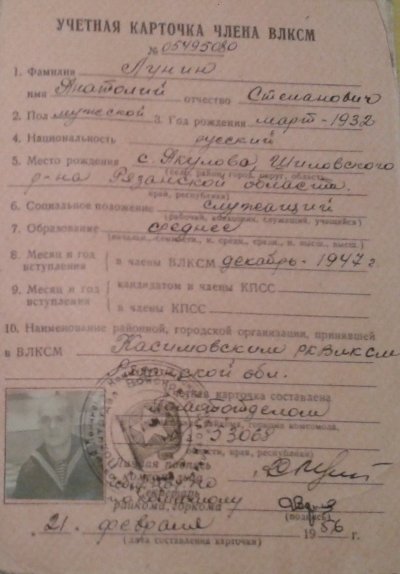 УЧЕТНАЯ КАРТОЧКА ЧЛЕНА ВЛКСМ
№ 05495080
1. Фамилия Лунин
имя Анатолий отчество Степанович
2. Пол мужской 3. Год рождения март-1932
4. Национальность русский
5. Место рождения с. Якулова, Шиловского
(село, район, город, округ, область,
р-на Рязанской области.
край, республика)
6. Социальное положение служащий
(рабочий, колхозник, служащий, учащийся)
7. Образование среднее
8. Месяц и год
вступления в члены ВЛКСМ декабрь-1947 г
9. Месяц и год
вступления кандидатом в члены КПСС
в члены КПСС
10. Наименование районной, городской организации, принявшей
в ВЛКСМ Касимовским рк ВЛКСМ
Рязанской обл.
Учетная карточка составлена
Политотделом
53068
край, республики)
Личная подпись
секретарь
райкома, горкома
(подпись)
21. февраля 1956 г.
(дата составления карточки)